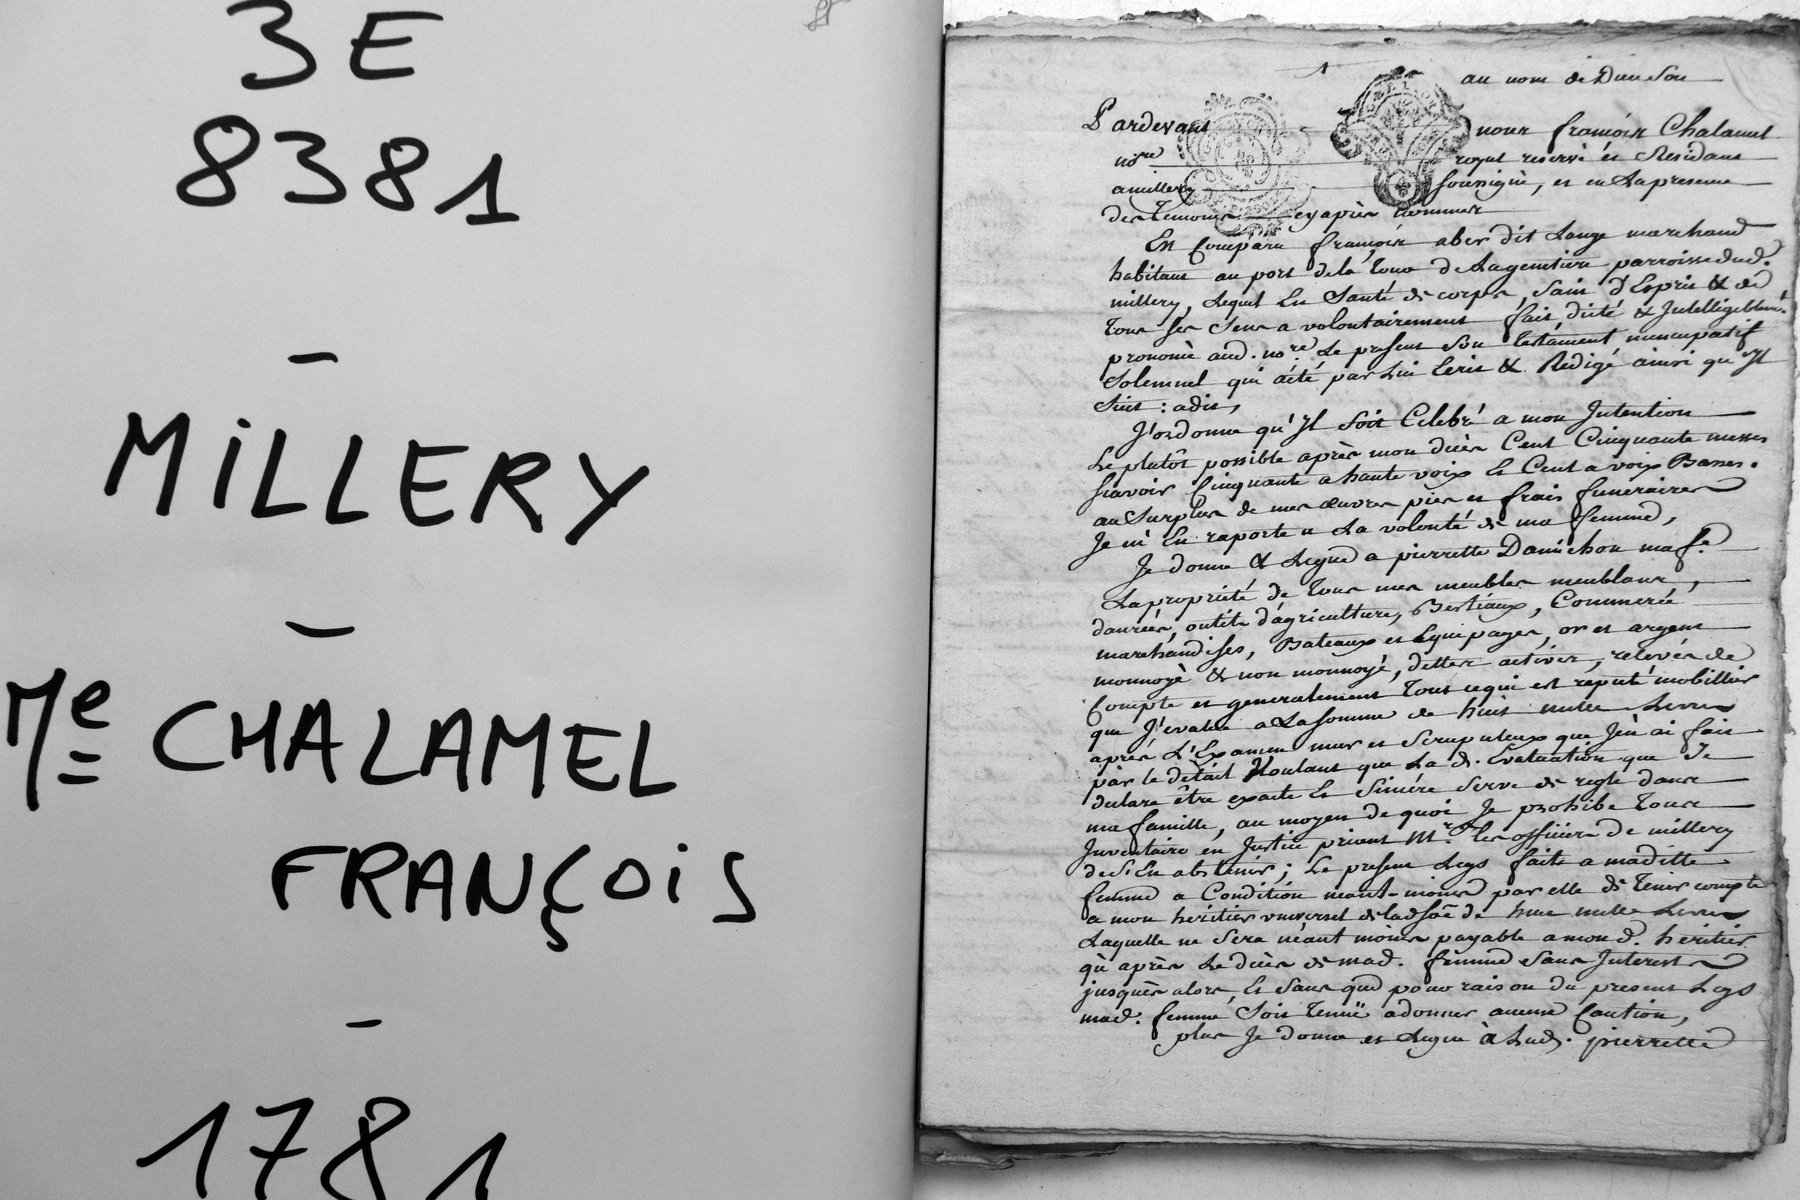 3 E
8381
–
MiLLERY
–
Me CHALAMEL
FRANÇOiS
–
1781
au nom de Dieu Soit
Pardevant nous françois Chalamel
nore royal reservé et Residant
a millery soussigné, et en La presence
des temoins cy après nommés
Est Comparu françois aber dit Lange marchand
habitant au port de la Tour de Lagenetiere parroisse dud.
millery, Lequel En Santé de corps, Sain d'Esprit & de
Tous ses Sens a volontairement fait, dicté & Intelligiblemt.
prononcé aud. nore Le present Son testament nuncupatif
Solemnel qui a été par Lui Ecrit & Redigé ainsi qu'Il
Suit : a dit,
J'ordonne qu'Il soit Celebré a mon Intention
Le plutôt possible après mon décès Cent Cinquante messes
Scavoir Cinquante a haute voix Et Cent a voix Basses.
au Surplus de mes œuvres pies et frais funeraires
Je m'En raporte a La volonté de ma femme,
Je donne & Legue a pierrette Danichon ma fe.
La propriété de Tous mes meubles meublans,
danrées, outils d'agriculture, Bestiaux, Commerce
marchandises, Bateaux et Equipages, or et argent
monnoyé & non monnoyé, dettes actives, relevés de
Compte et generalement Tout ce qui est reputé mobillier
que J'evalue a La somme de huit mille Livres
après L'Examen mur et Scrupuleux que J'en ai fait
par le détail Voulant que La d. Evaluation que Je
declare être exacte Et Sincére Serve de regle dans
ma famille, au moyen de quoi Je prohibe Tous
Inventaire en Justice priant Mrs. les officiers de millery
de S'En abstenir; Le present Legs faite a maditte
femme a Condition néant-moins par elle de Tenir compte
a mon heritier universel de lad. sôe de huit mille Livres
Laquelle ne Sera néant moins payable a mond. heritier
qu'après Le décès de mad. femme Sans Interests
jusques alors, Et Sans que pour raison du present Legs
mad. femme Soit Tenuë a donner aucune Caution,
plus Je donne et Legue à Lad. pierrette